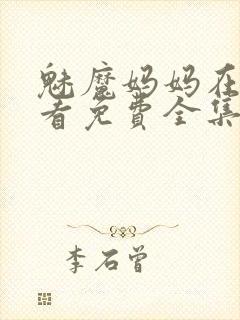 魅魔妈妈在
看免费全集
李石曾